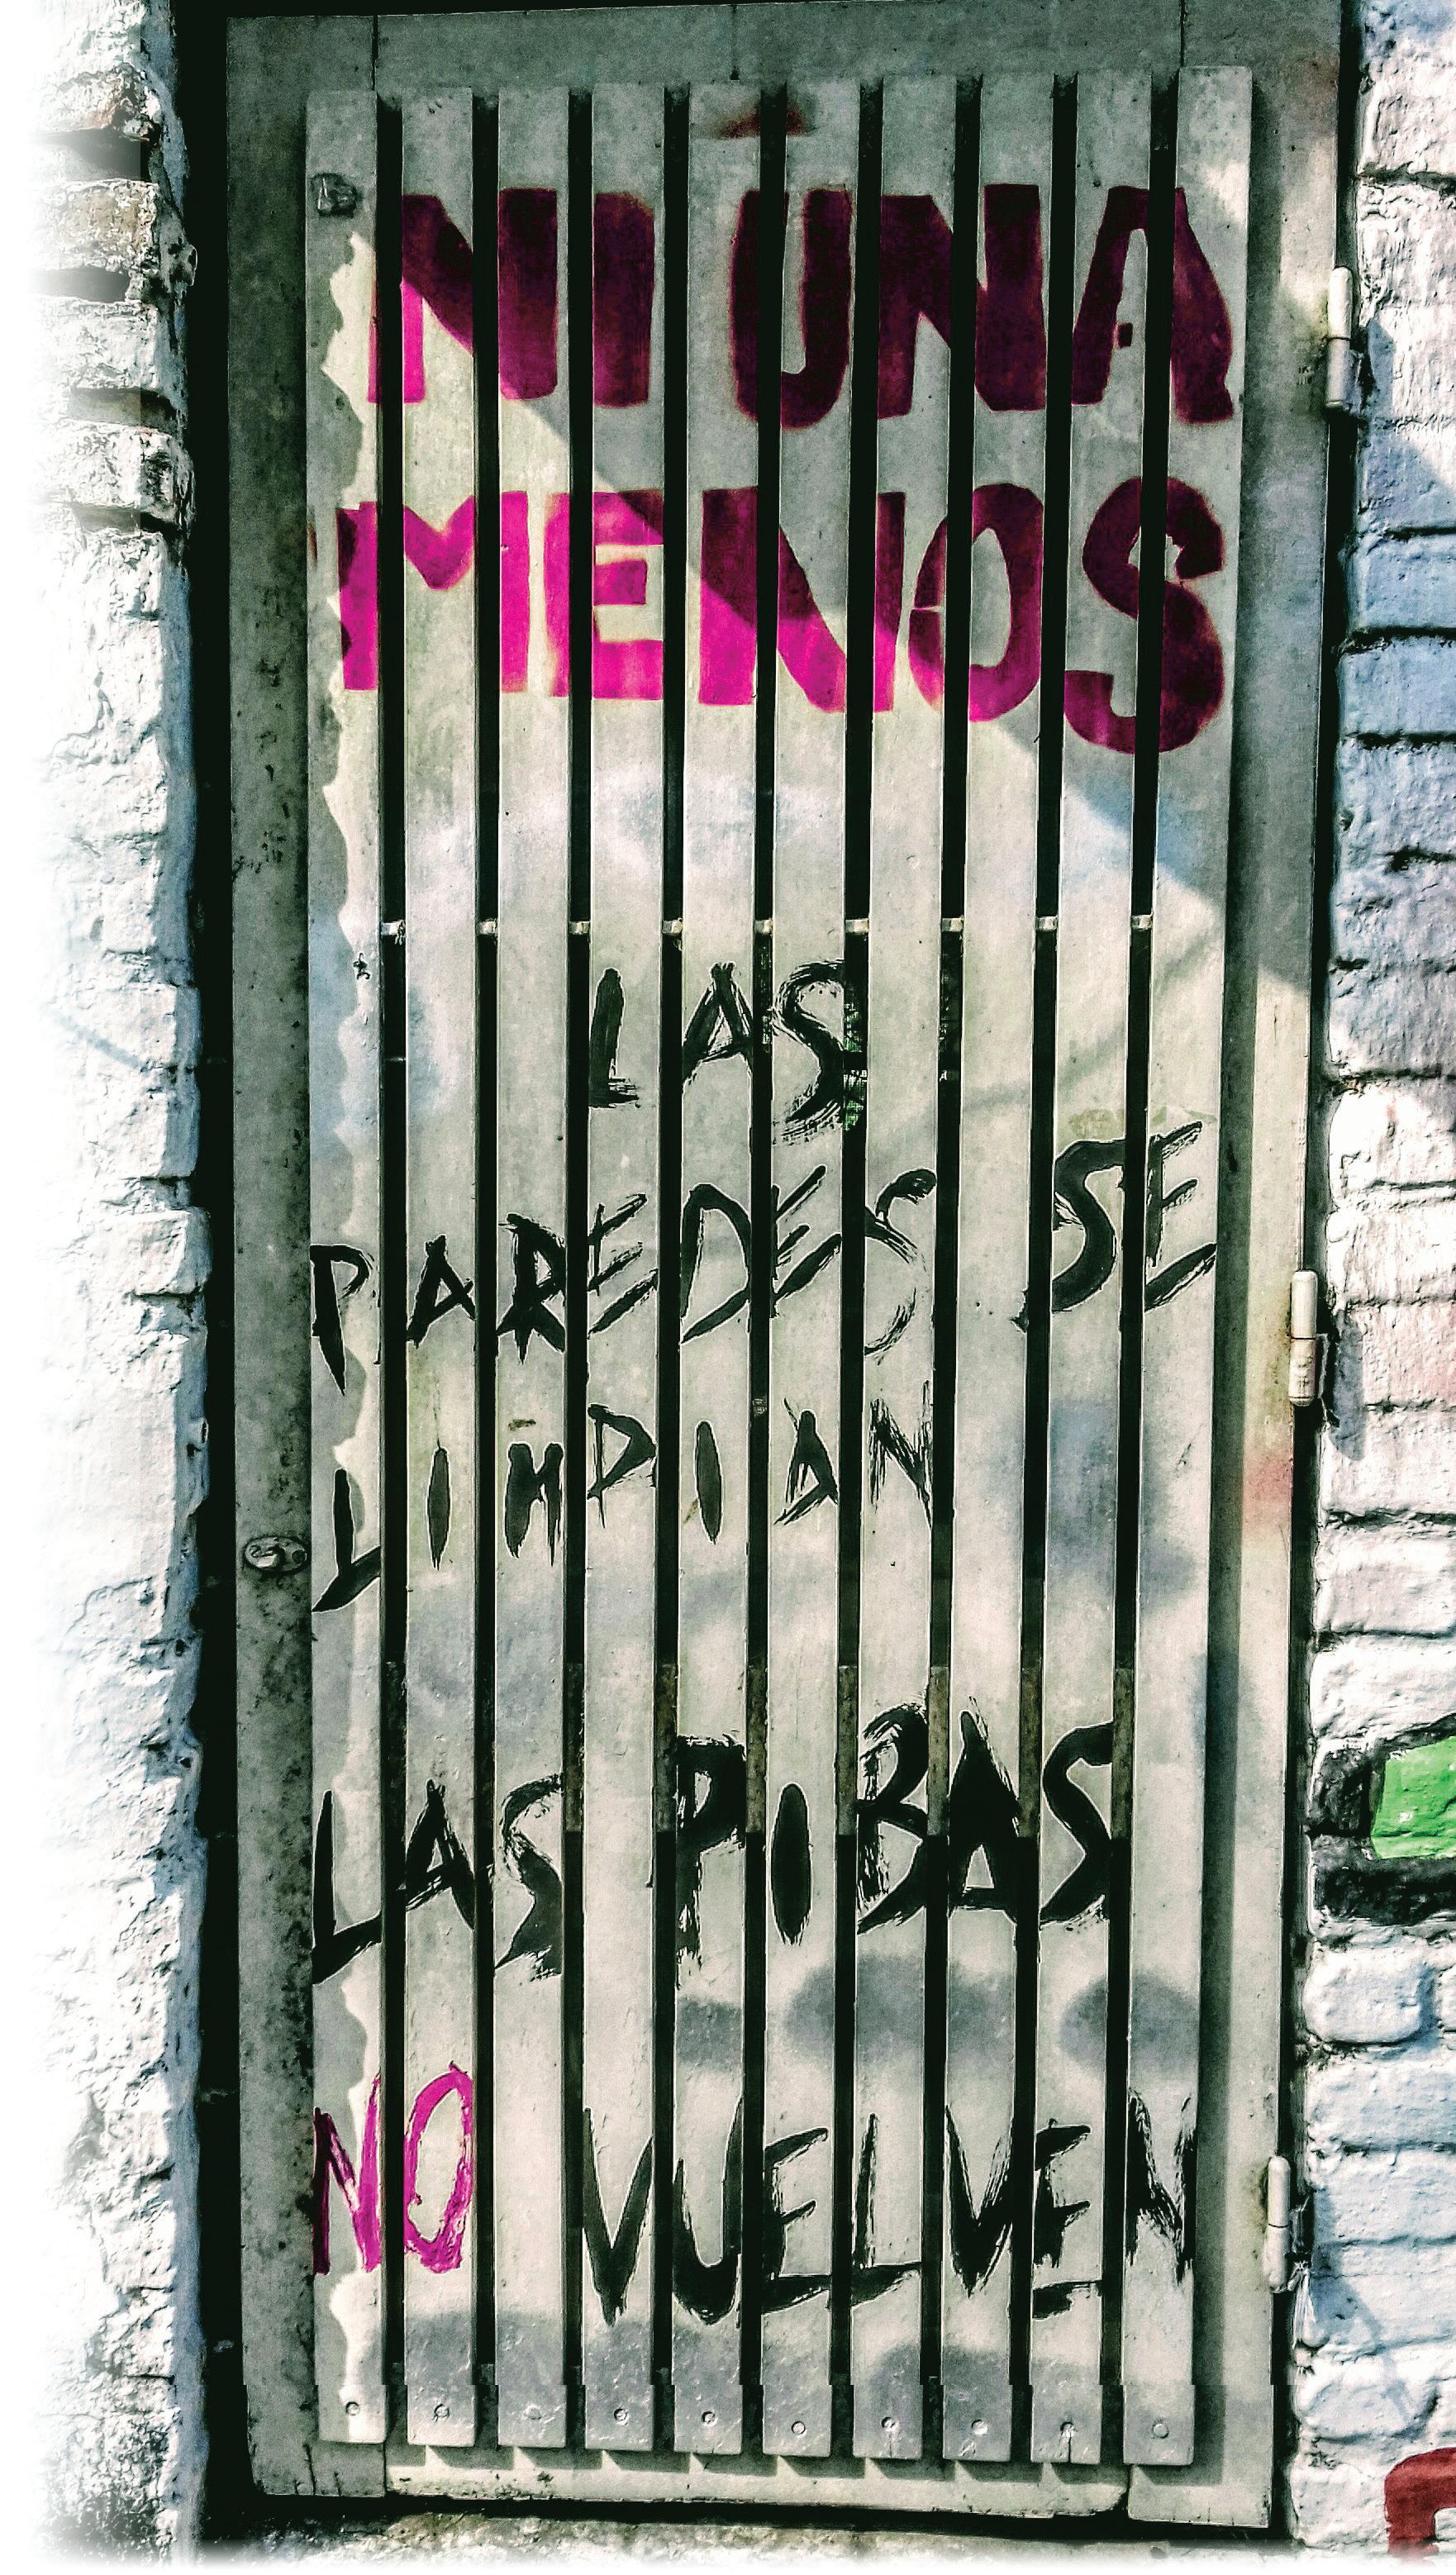 NI UNA
MENOS
LAS
PAREDES SE
LIMPIAN
LAS PIBAS
NO VUELVEN